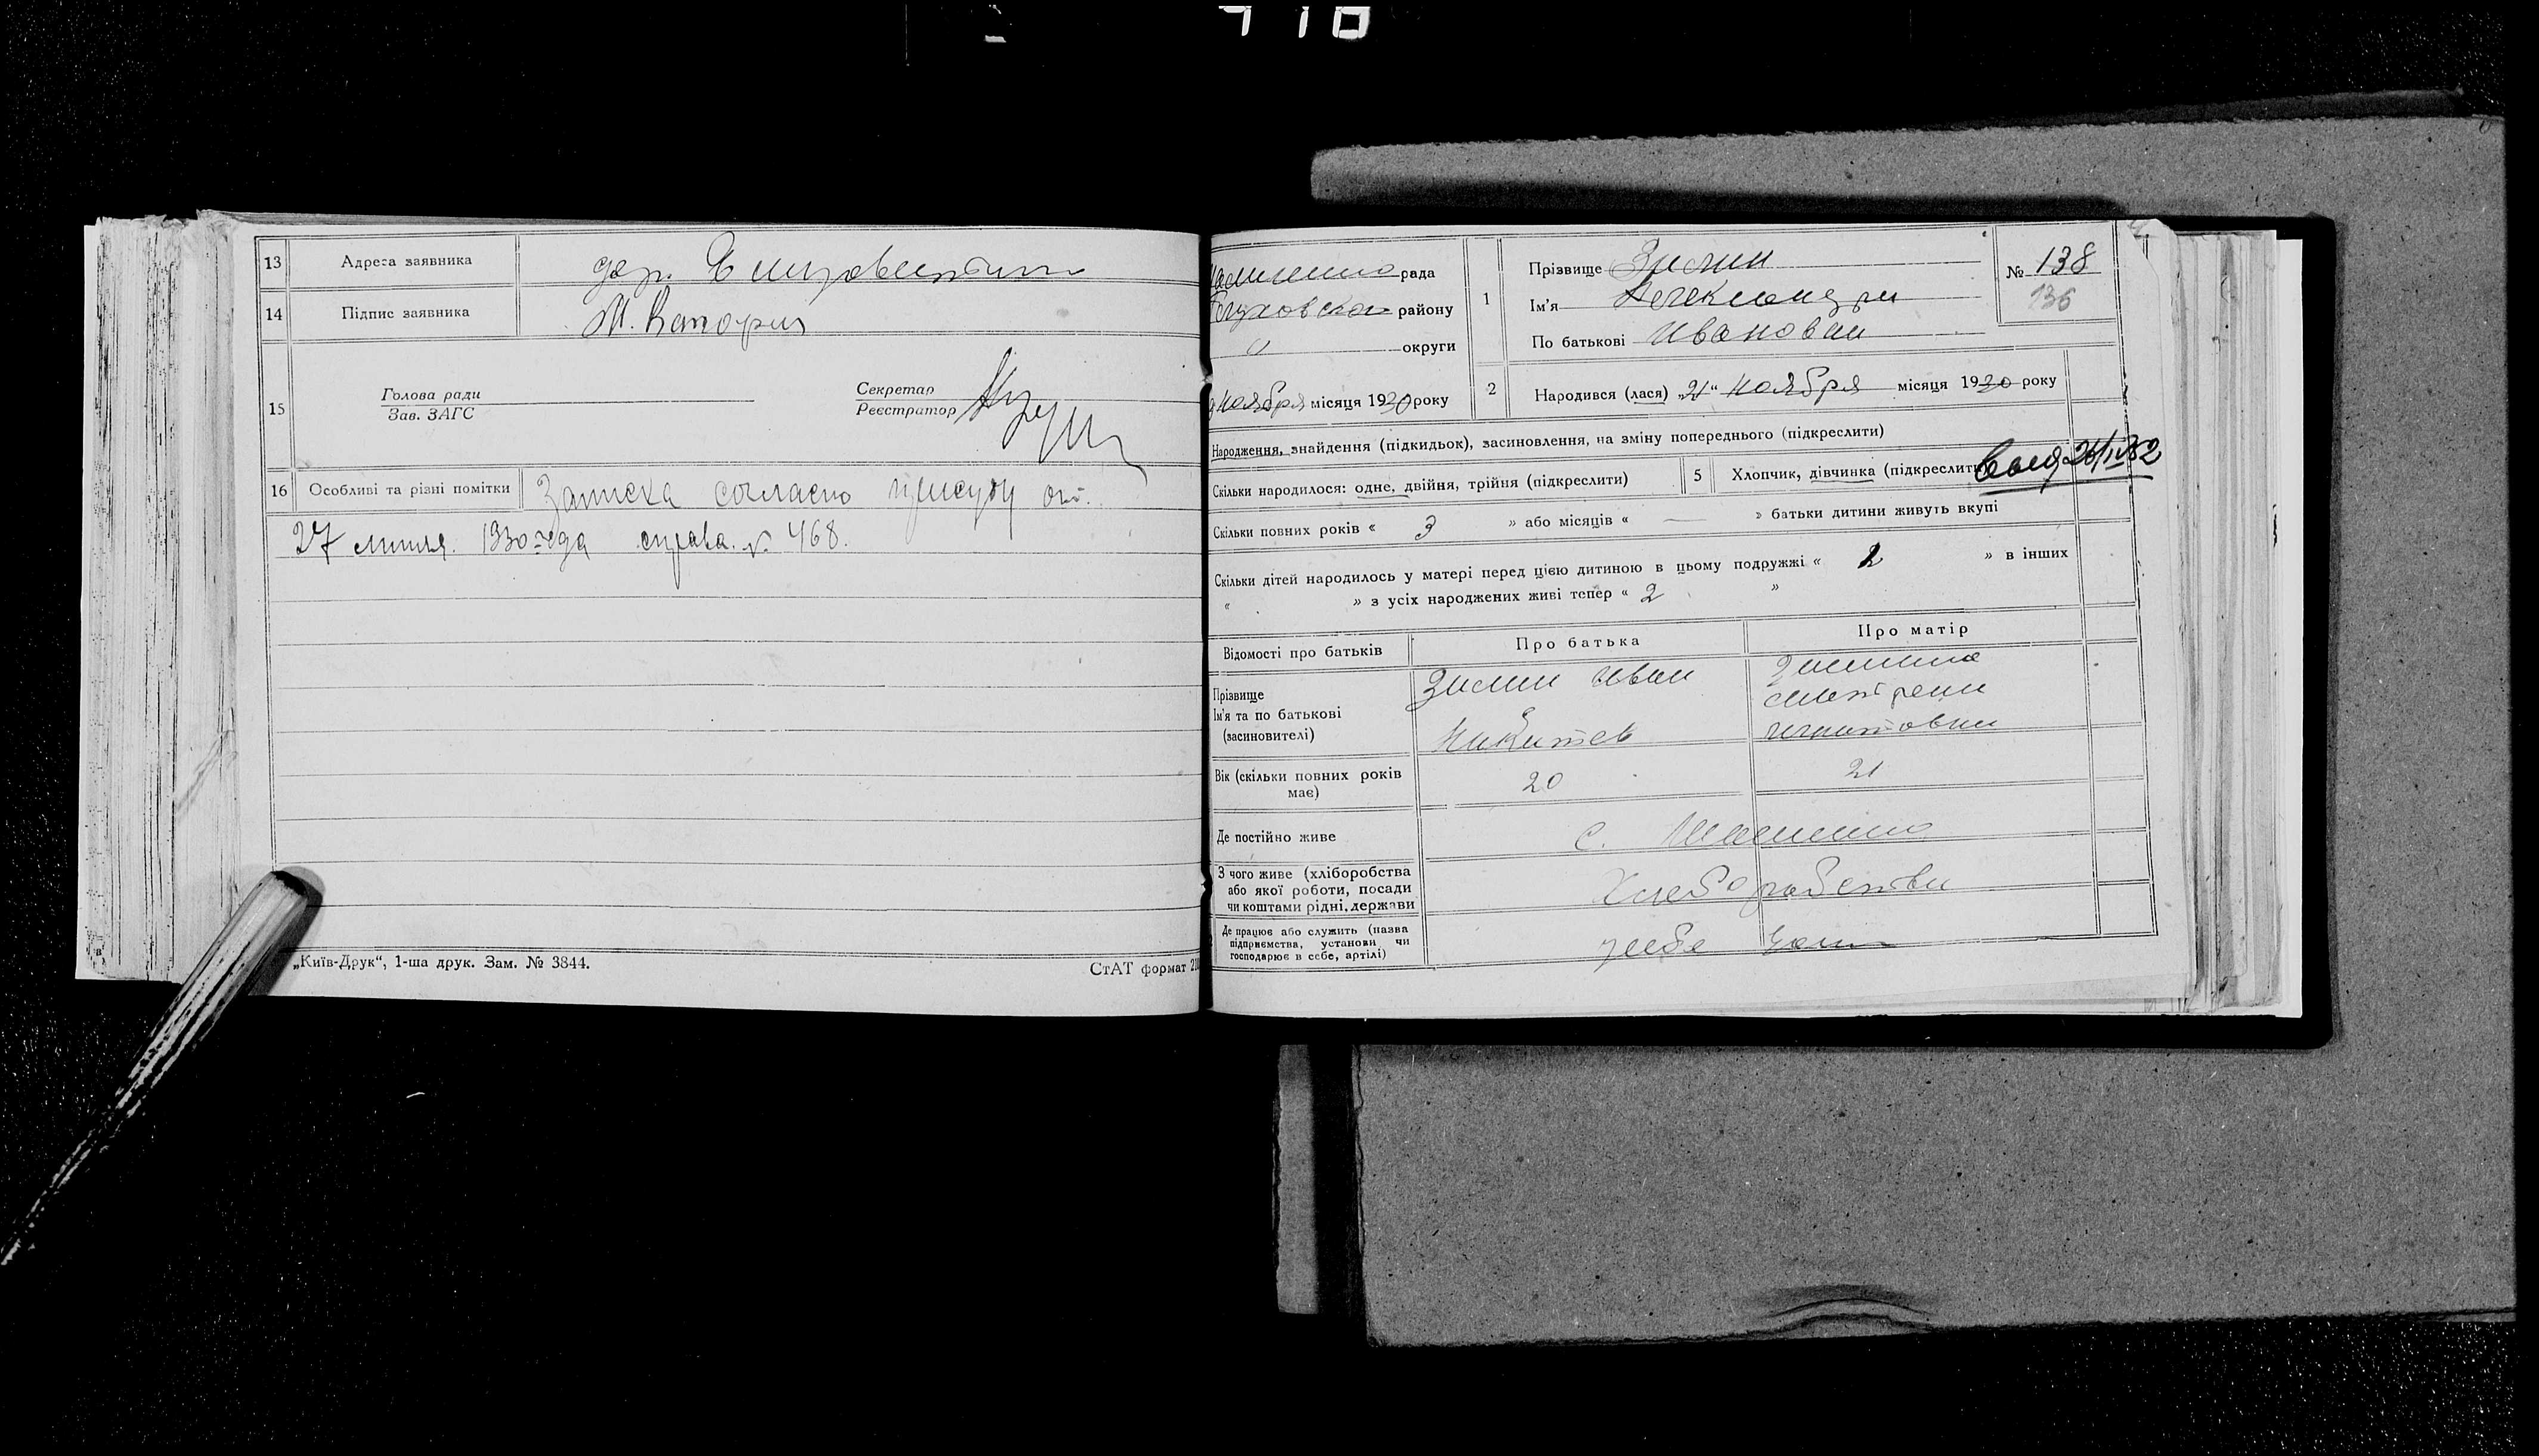 13 Адреса заявника дер.
14 Підпис заявника М.
15 Голова ради
Зав. ЗАГС
Секретар
Реєстратор
16 Особливі та різні помітки Записка согласно присуду от.
27 липня. 1930 года справа. № 468.
„Київ-Друк“, 1-ша друк. Зам. № 3844.
СтАТ формат
рада
району
округи
ноября місяця 1930 року
1 Прізвище Зимин
Ім'я Александра
По батькові Ивановна
№ 138
136
2 Народився (лася) „21“ ноября місяця 1930 року
Народження, знайдення (підкидьок), засиновлення, на зміну попереднього (підкреслити)
Скільки народилося: одне, двійня, трійня (підкреслити)
5 Хлопчик, дівчинка (підкреслити)
Скільки повних років « 3 » або місяців « — » батьки дитини живуть вкупі
Скільки дітей народилось у матері перед цією дитиною в цьому подружжі « 2 » в інших
« » з усіх народжених живі тепер « 2 »
Відомості про батьків Про батька Про матір
Прізвище
Ім'я та по батькові
(засновителі)
Зимин Иван
Никитов
Зимина
Игнатовна
Вік (скільки повних років має) 20 21
Де постійно живе с.
З чого живе (хліборобства
або якої роботи, посади
чи коштами рідні, держави
Хлеборобство
Де працює або служить (назва
підприємства, установи чи
господарює в себе, артілі)